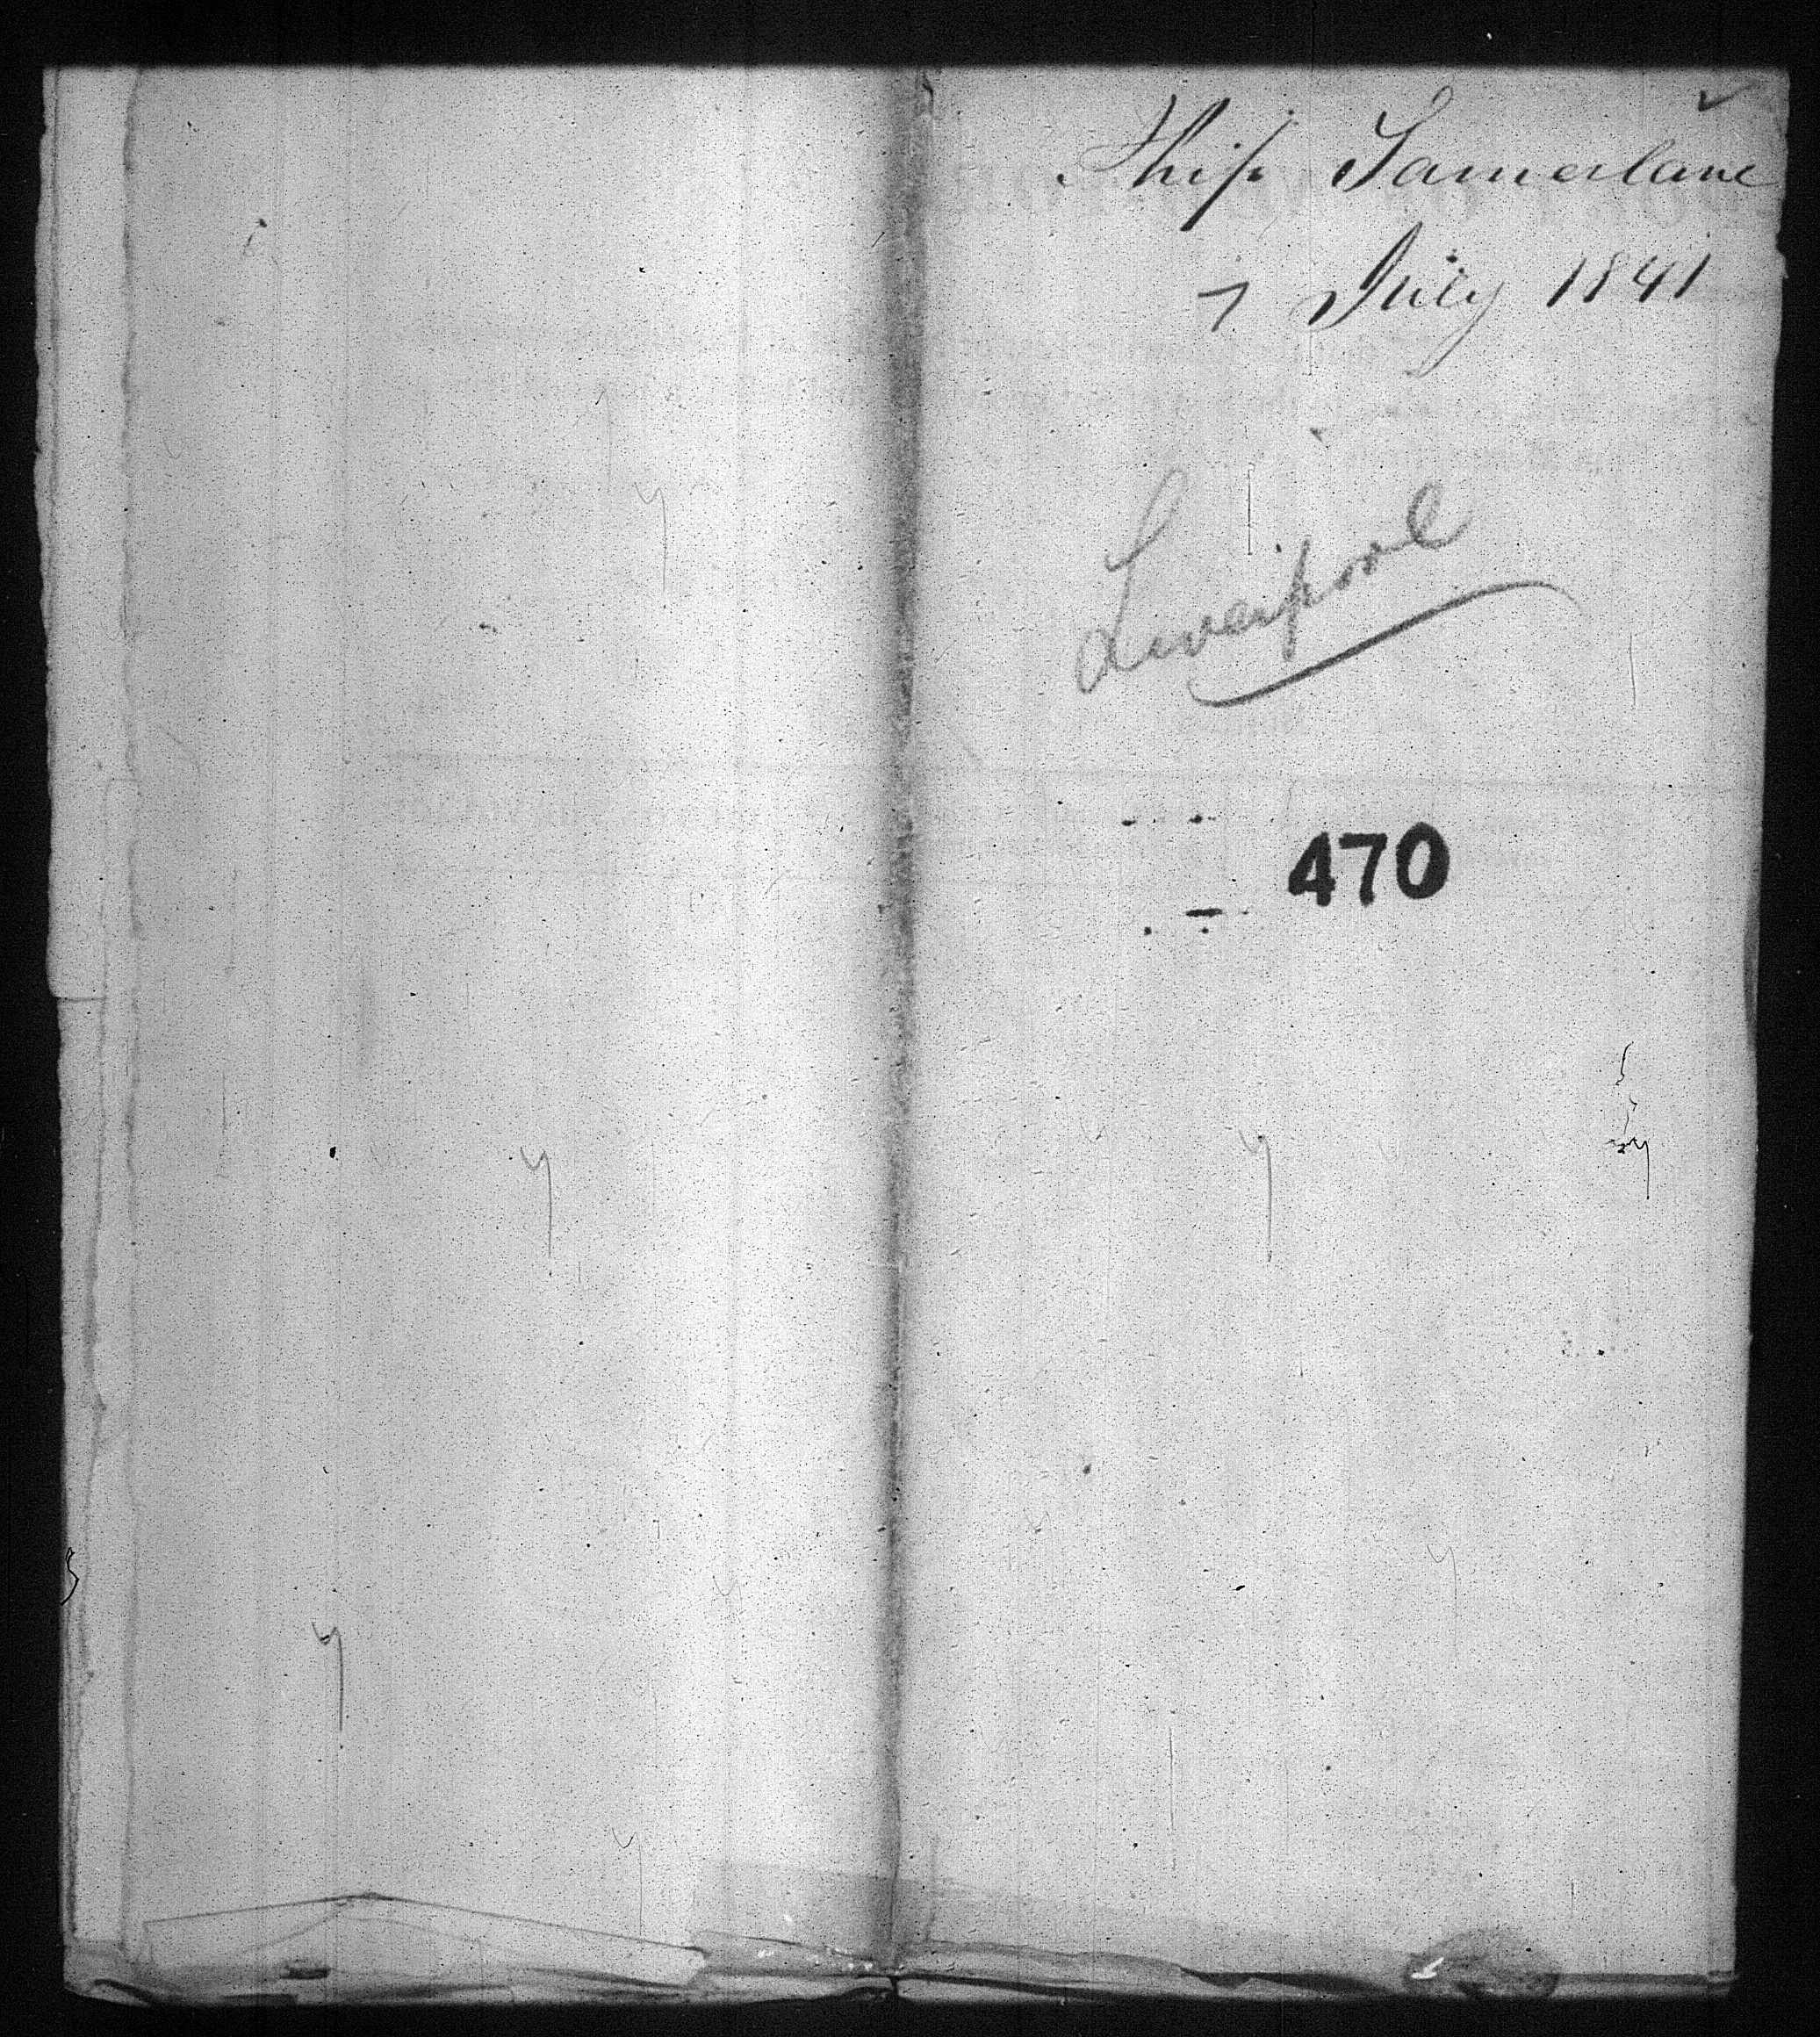 Ship Tamerlane
7 July 1841
Liverpool
470